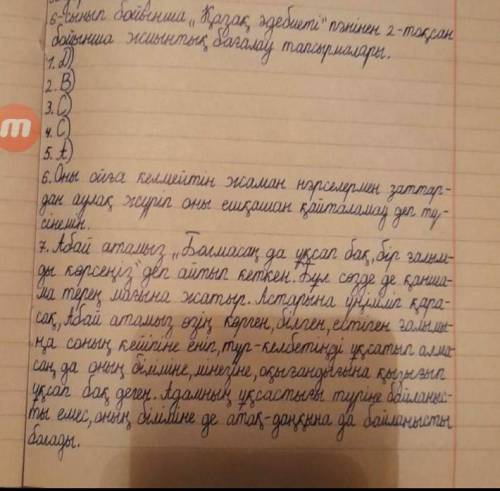 6-сынып бойынша „Қазақ әдебиеті" пәнінен 2-тоқсан
бойынша жиынтық бағалау тапсырмалары.
1. D)
2. B)
3. C)
4. C)
5. A)
6. Оны ойға келмейтін жаман нәрселермен заттар-
дан аулақ жүріп оны ешқашан қайталамау деп тү-
сінемін.
7. Абай атамыз „Болмасаң да ұқсап бақ, бір ғалым-
ды көрсеңіз" деп айтып кеткен. Бұл сөзде де қанша-
ма терең мағына жатыр. Астарына үңіліп қара-
сақ, Абай атамыз өзің көрген, білген, естіген ғалымы-
ңа соның кейпіне еніп, түр-келбетіңді ұқсатып алма-
саң да оның біліміне, мінезіне, оқығандығына қызығып
ұқсап бақ деген. Адамның ұқсастығы түріне байланыс-
ты емес, оның біліміне де атақ-даңқына да байланысты
болады.
m